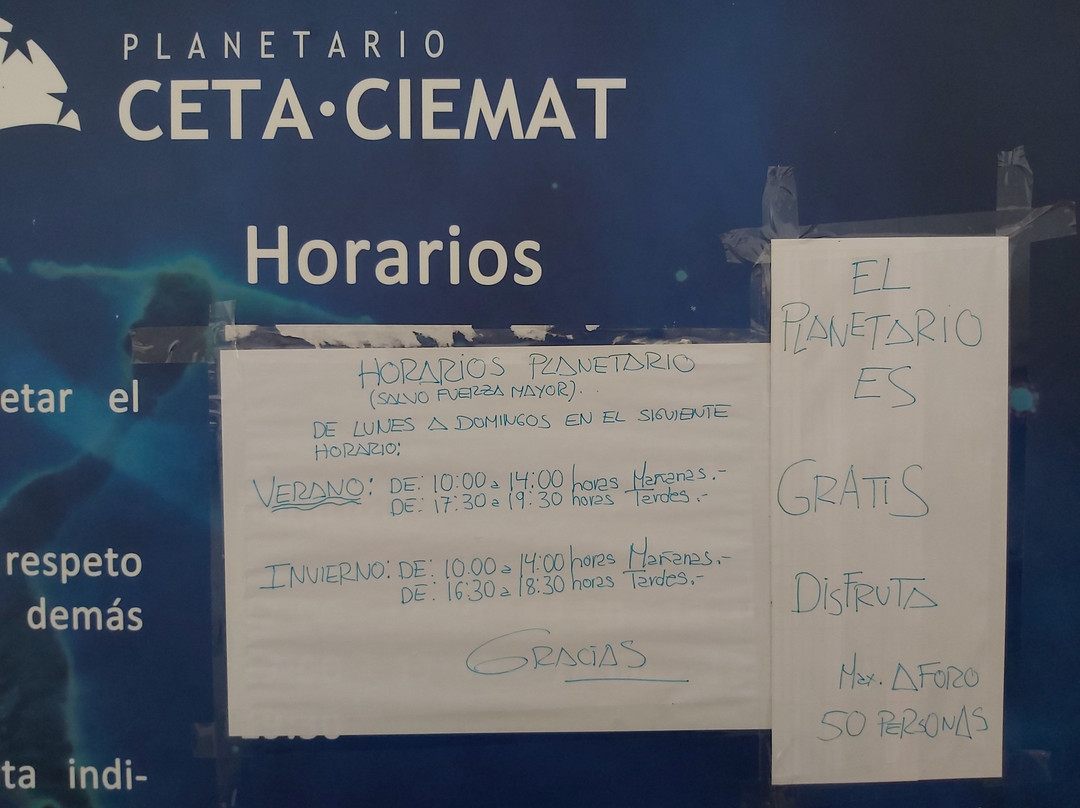 PLANETARIO
CETA·CIEMAT
Horarios
etar el
respeto
demás
ta indi-
HORARIOS PLANETARIO
(SALVO FUERZA MAYOR)..
DE LUNES A DOMINGOS EN EL SIGUIENTE
HORARIO:
VERANO: DE: 10:00 a 14:00 horas Mañanas.-
DE: 17:30 a 19:30 horas Tardes.-
INVIERNO: DE: 10:00 a 14:00 horas Mañanas.-
DE: 16:30 a 18:30 horas Tardes.-
GRACIAS
EL
PLANETARIO
ES
GRATIS
DISFRUTA
Max. AFORO
50 PERSONAS